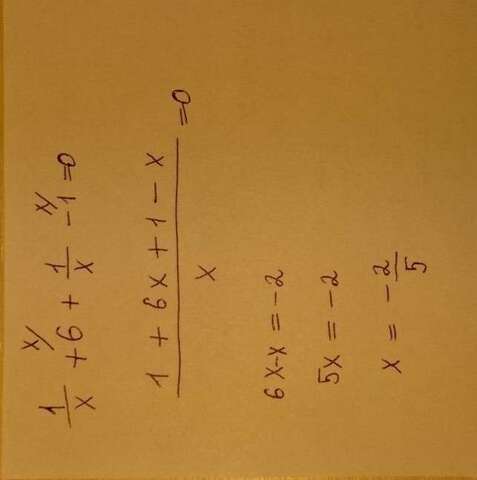 1/x + 6 x/ + 1/x - 1 x/ = 0
1 + 6x + 1 - x / x = 0
6x-x = -2
5x = -2
x = - 2/5